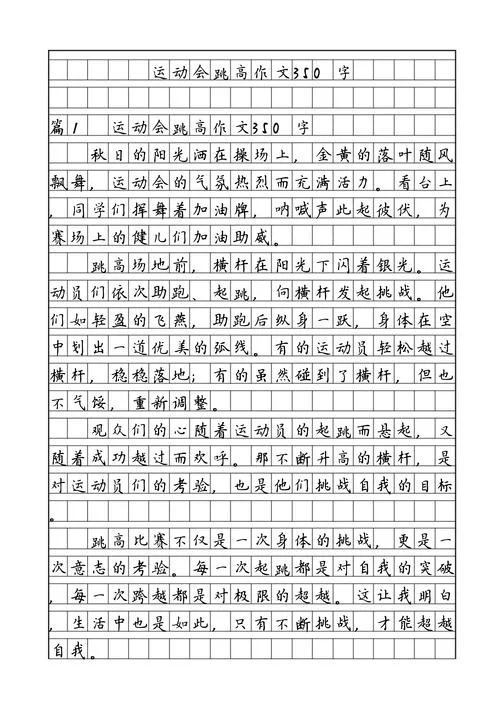 运动会跳高作文350 字
篇1 运动会跳高作文350 字
秋日的阳光洒在操场上，金黄的落叶随风
飘舞，运动会的气氛热烈而充满活力。看台上
，同学们挥舞着加油牌，呐喊声此起彼伏，为
赛场上的健儿们加油助威。
跳高场地前，横杆在阳光下闪着银光。运
动员们依次助跑、起跳，向横杆发起挑战。他
们如轻盈的飞燕，助跑后纵身一跃，身体在空
中划出一道优美的弧线。有的运动员轻松越过
横杆，稳稳落地；有的虽然碰到了横杆，但也
不气馁，重新调整。
观众们的心随着运动员的起跳而悬起，又
随着成功越过而欢呼。那不断升高的横杆，是
对运动员们的考验，也是他们挑战自我的目标
。
跳高比赛不仅是一次身体的挑战，更是一
次意志的考验。每一次起跳都是对自我的突破
，每一次跨越都是对极限的超越。这让我明白
，生活中也是如此，只有不断挑战，才能超越
自我。